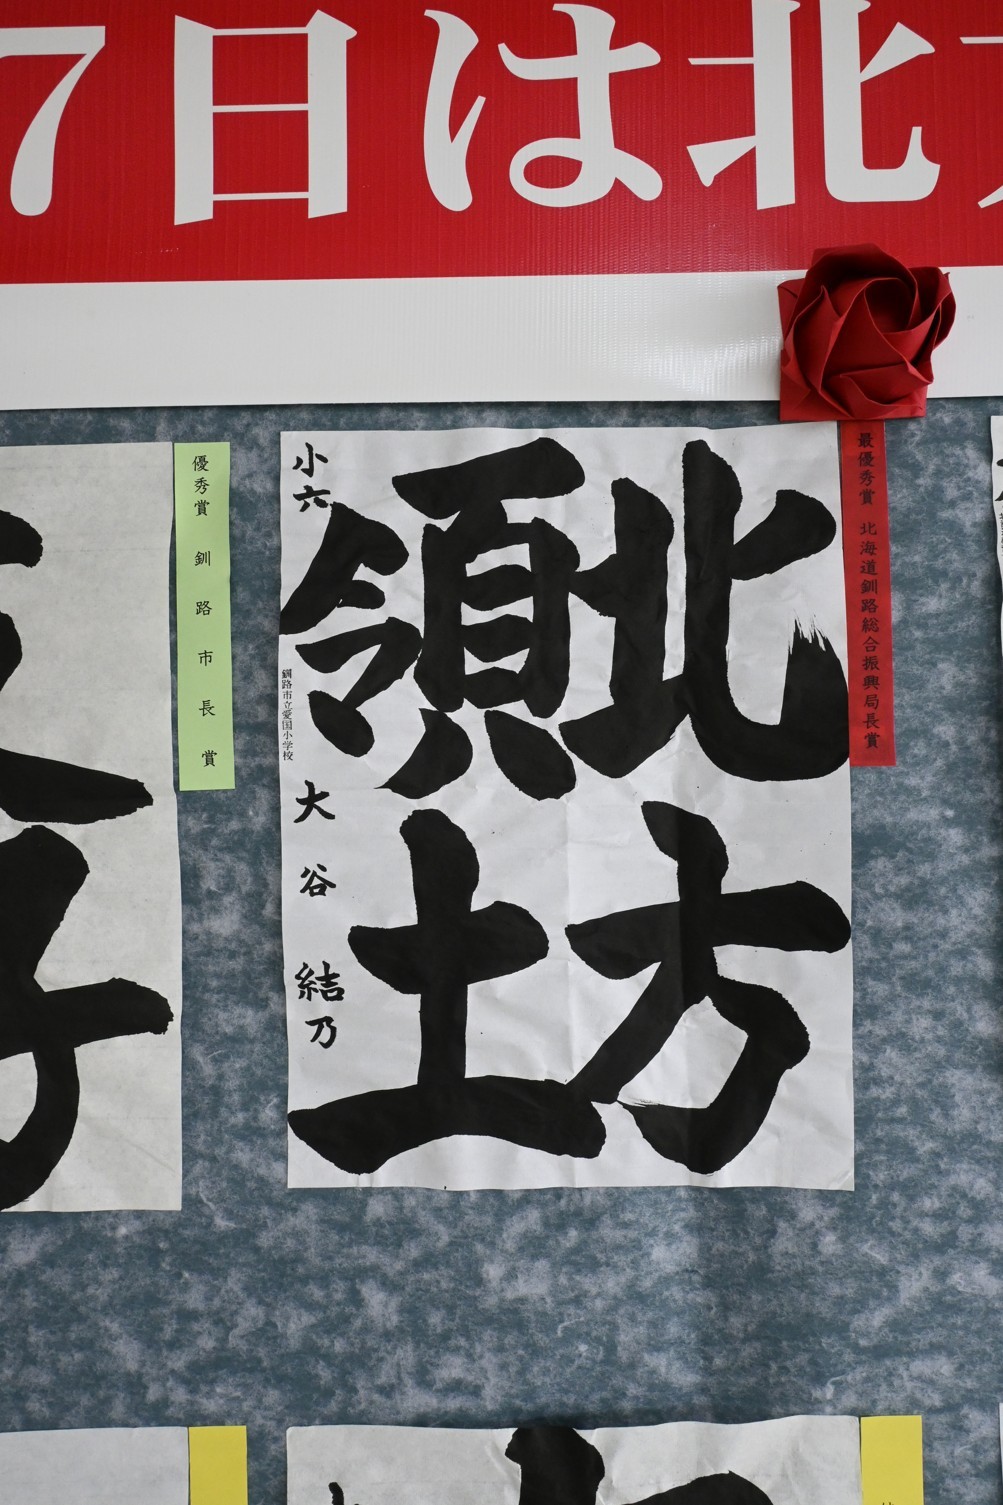 7日は北
最優秀賞 北海道釧路総合振興局長賞
北方
領土
小六
釧路市立愛国小学校
大谷 結乃
優秀賞 釧路市長賞
子